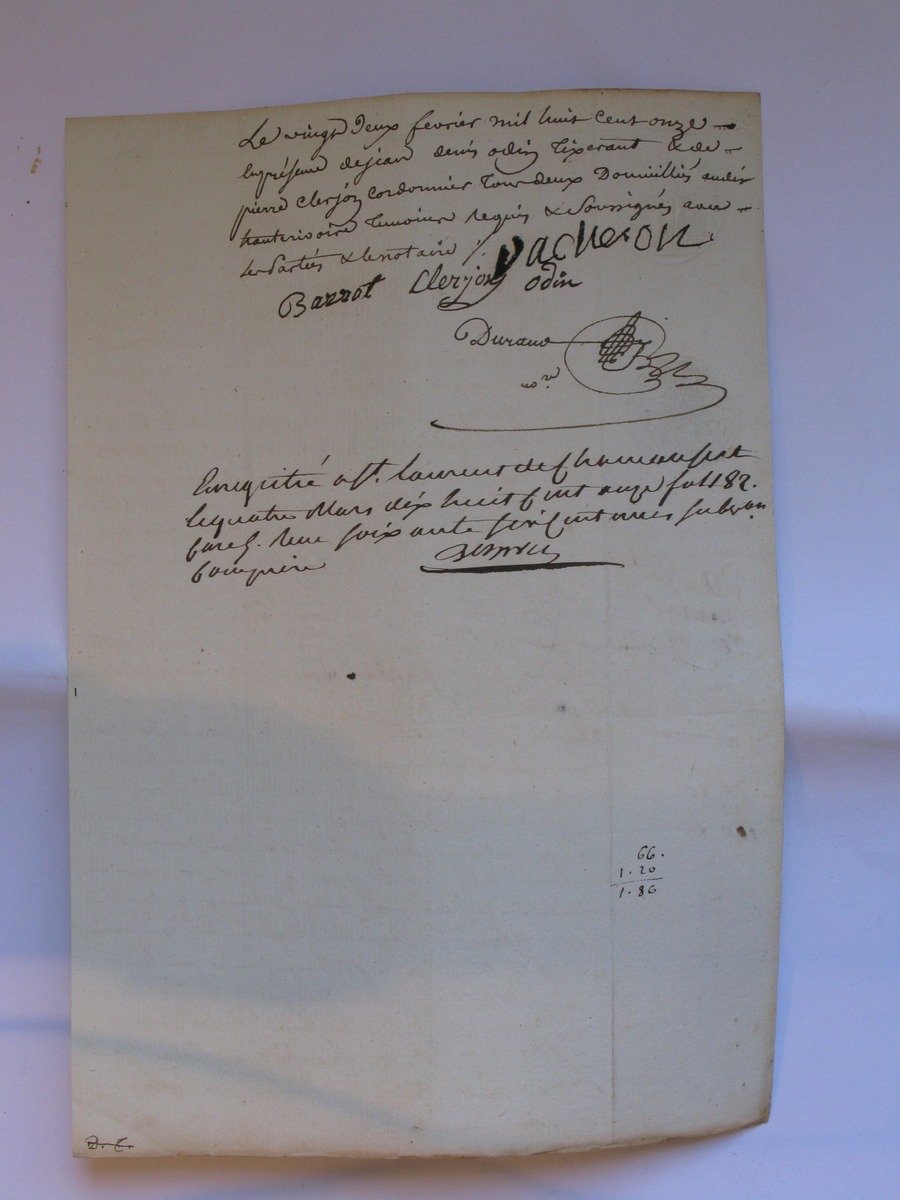 Le vingt Deux fevrier mil huit Cent onze
En présence de jean denis odin Tixerant & de
pierre Clerjon Cordonnier Tous deux Domiciliés audit
hauterivoire Temoins Requis & Soussignés avec
Les Parties & le notaire /.
Vacheron
Barrot Clerjon odin
Durand
nore
Enregistré a St. laurent de Chamousset
le quatre Mars dix huit Cent onze fol 182.
Care 5. Reçu soixante six Centimes subvon
Comprise
66.
1.20
1.86
D. C.